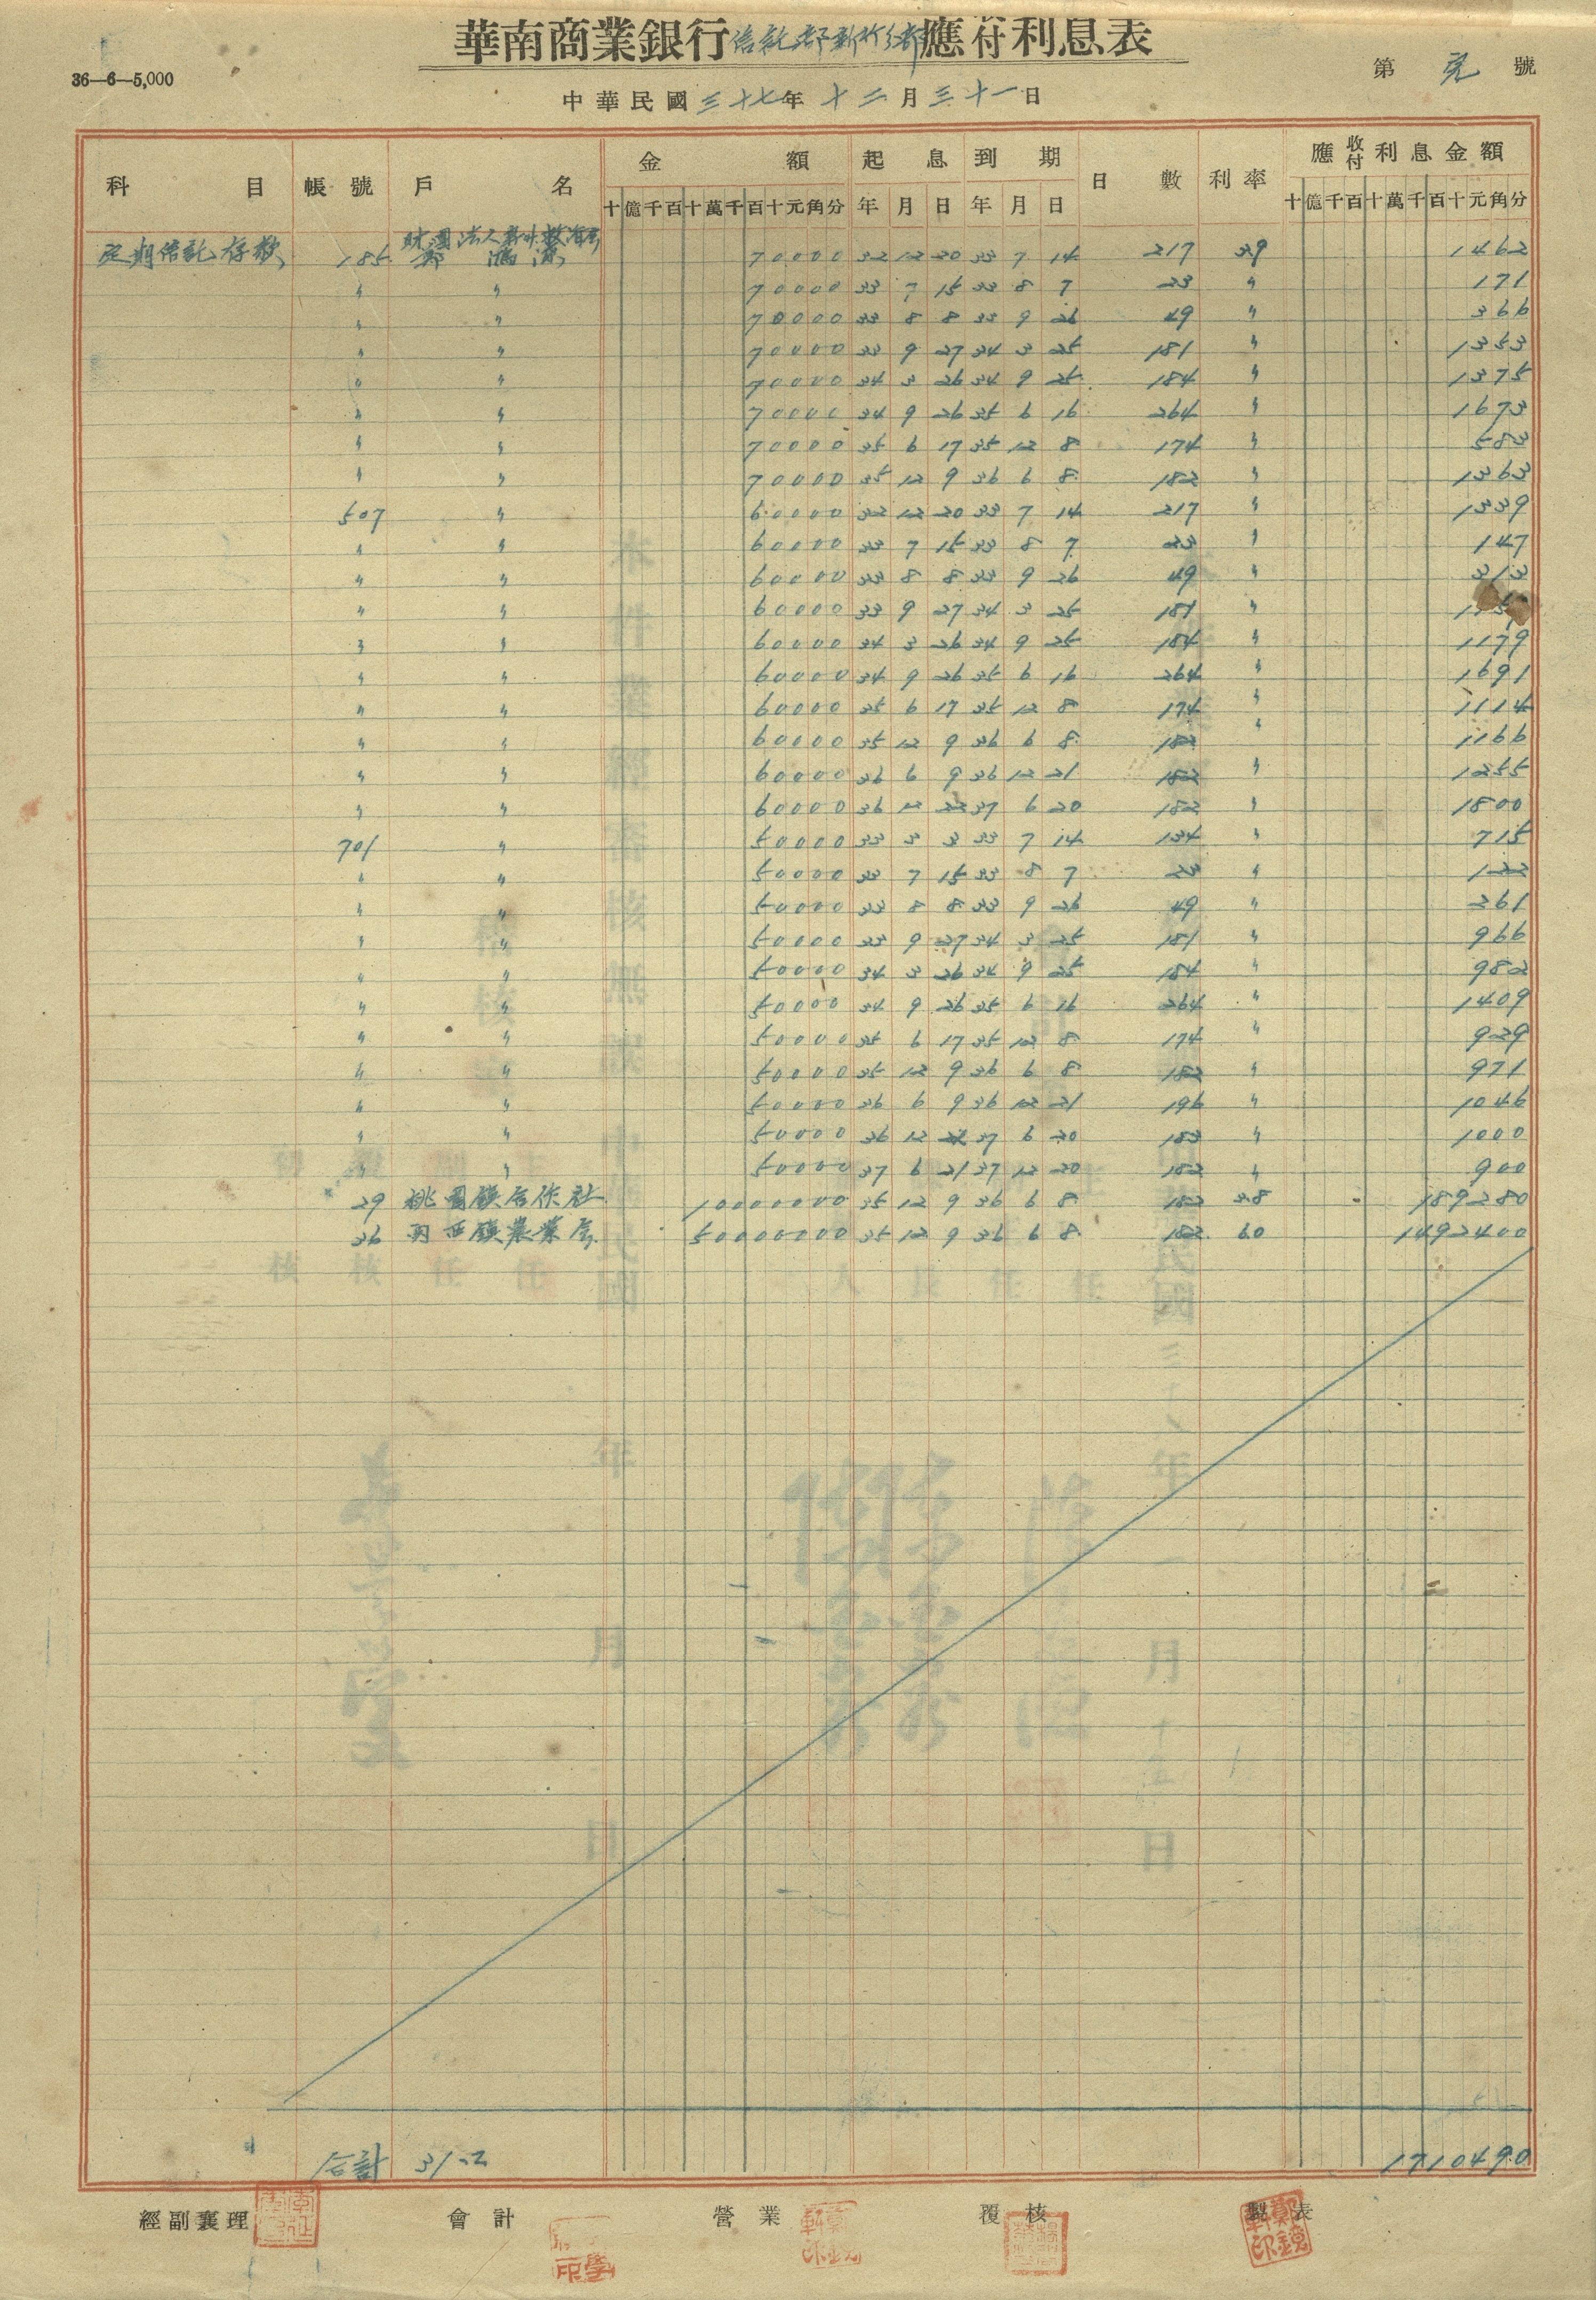 華南商業銀行信託部新竹分部應收付利息表
36—6—5,000
第 號
中華民國三十七年十二月三十一日
科目 帳號 戶名 金額 起息 到期 日數 利率 應收付利息金額
十億千百十萬千百十元角分 年月日 年月日 十億千百十萬千百十元角分
定期信託存款 185 財團法人新竹救濟會
70000 32 12 20 33 7 14 217 3.9 1462
〃 〃 70000 33 7 15 33 8 7 23 〃 171
〃 〃 70000 33 8 8 33 9 26 49 〃 366
〃 〃 70000 33 9 27 34 3 25 181 〃 1353
〃 〃 70000 34 3 26 34 9 25 184 〃 1375
〃 〃 70000 34 9 26 35 6 16 264 〃 1673
〃 〃 70000 35 6 17 35 12 8 174 〃 583
〃 〃 70000 35 12 9 36 6 8 182 〃 1363
507 〃 60000 32 12 20 33 7 14 217 〃 1339
〃 〃 60000 33 7 15 33 8 7 23 〃 147
〃 〃 60000 33 8 8 33 9 26 49 〃 313
〃 〃 60000 33 9 27 34 3 25 181 〃
〃 〃 60000 34 3 26 34 9 25 184 〃 1179
〃 〃 60000 34 9 26 35 6 16 264 〃 1691
〃 〃 60000 35 6 17 35 12 8 174 〃 1114
〃 〃 60000 35 12 9 36 6 8 182 〃 1166
〃 〃 60000 36 6 9 36 12 21 182 〃 1255
〃 〃 60000 36 12 22 37 6 20 182 〃 1800
701 〃 50000 33 3 3 33 7 14 134 〃 715
〃 〃 50000 33 7 15 33 8 7 23 〃 122
〃 〃 50000 33 8 8 33 9 26 49 〃 261
〃 〃 50000 33 9 27 34 3 25 181 〃 966
〃 〃 50000 34 3 26 34 9 25 184 〃 982
〃 〃 50000 34 9 26 35 6 16 264 〃 1409
〃 〃 50000 35 6 17 35 12 8 174 〃 929
〃 〃 50000 35 12 9 36 6 8 182 〃 971
〃 〃 50000 36 6 9 36 12 21 196 〃 1046
〃 〃 50000 36 12 37 6 20 183 〃 1000
〃 〃 50000 37 6 21 37 12 20 182 〃 900
29 桃園鎮合作社 10000000 35 12 9 36 6 8 182 3.8 189280
36 鎮農業會 50000000 35 12 9 36 6 8 182 6.0 1492400
合計 31口 1710490
經副襄理 會計 營業 覆核 製表